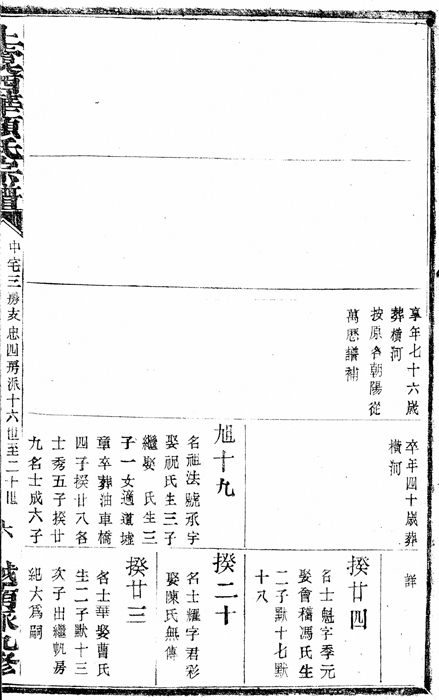 享年七十六歲
葬橫河
按原名朝陽從
萬曆譜補
卒年四十歲葬
橫河
旭十九
名祖法號承字
娶祝氏生三子
繼娶 氏生三
子一女適道墟
章卒葬油車橋
四子揆廿八名
士秀五子揆廿
九名士成六子
詳
揆廿四
名士魁字季元
娶會稽馮氏生
二子默十七默
十八
揆二十
名士耀字君彩
娶陳氏無傳
揆廿三
名士華娶曹氏
生二子默十三
次子出繼帆房
紀大爲嗣
項氏宗譜
中宅三房支忠四房派十六世至二十世 六